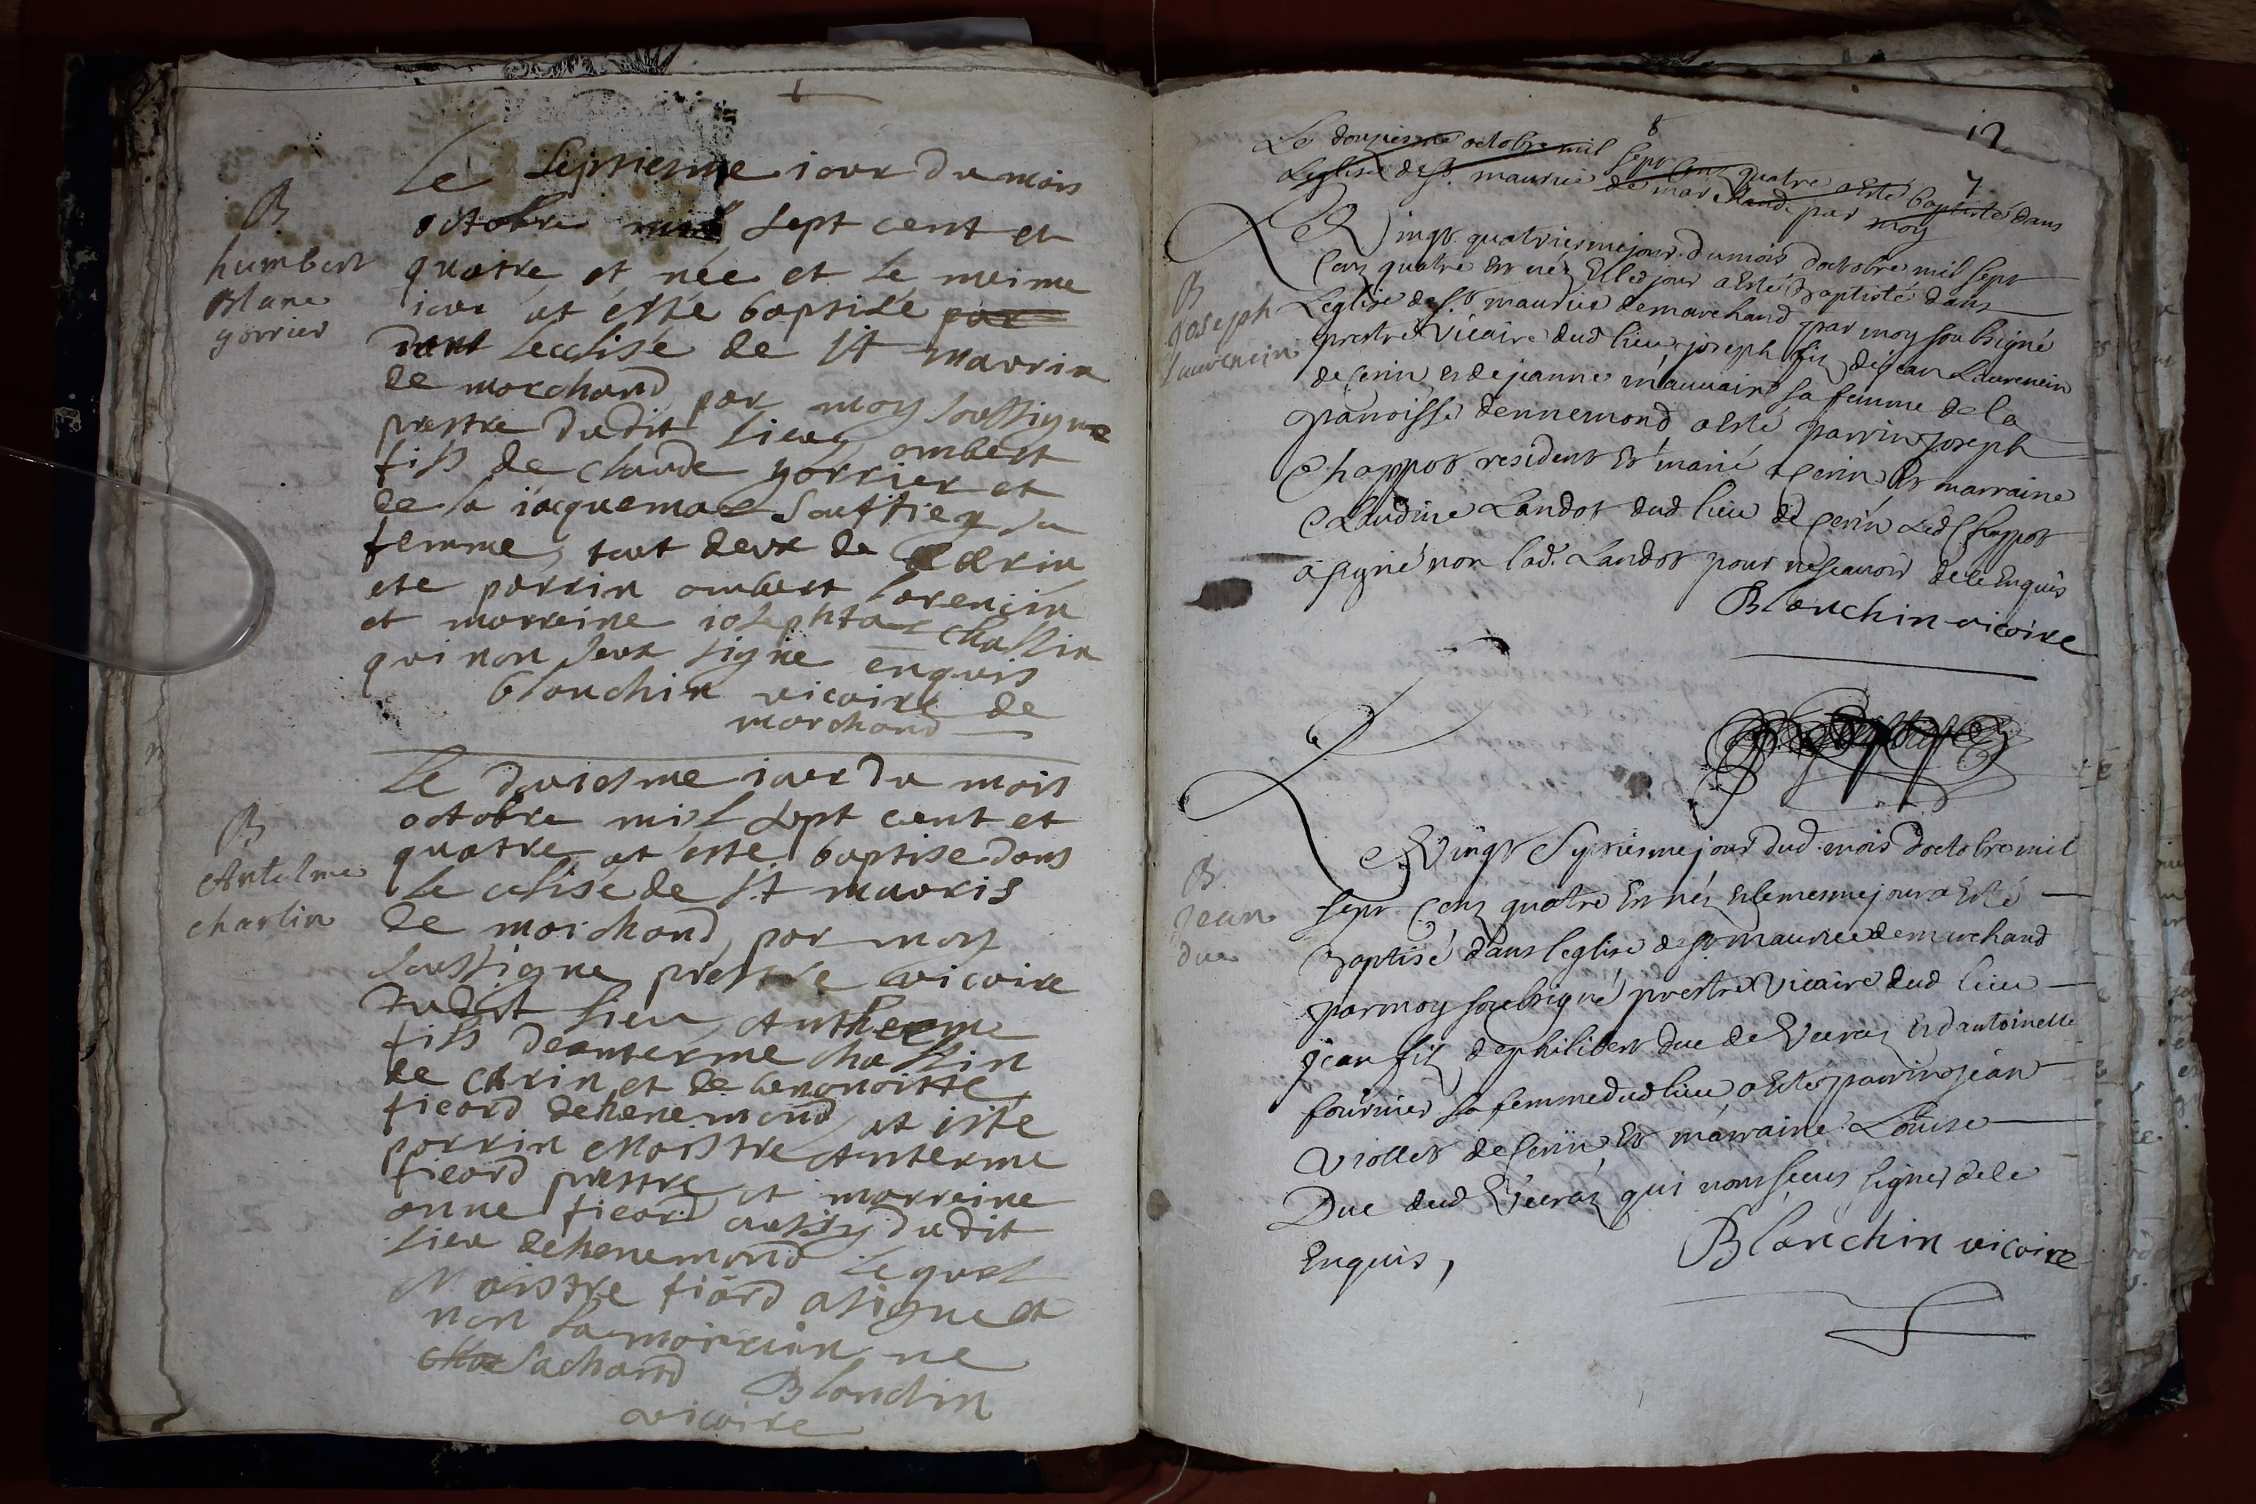 Le septiesme iour du mois
octobre mil sept cent et
quatre et née et le meime
iour at esté baptisée par
dans lecglise de st maurin
de marchand par moy soussigne
prestre dudit lieu ombert
fils de claude gorrier et
de la iaquemae sa
femme, tout deux de cerin
ete parrin ombert lorencin
et marreine chaslin
qui non seut signe enquis
blanchin vicaire de
marchand
B
humbert
Blanc
gorrier
Le iour du mois
octobre mil sept cent et
quatre at esté baptise dans
le celise de st mauris
de marchand, par moy
soussigne prestre vicaire
dudit lieu Anthelme
fils deanterme chaslin
de cerin et de benonoitte
ficord dehenemond at este
parrin Moistre Anterme
ficord prestre et marreine
anne ficord aussy dudit
lieu dehenemond lequel
Moistre fiord asigne et
non la marrein ne
sachand Blanchin
vicaire
B
Antelme
charlin
8
12
7
Le douziesme octobre mil sept cens quatre a esté baptisté dans
Leglise de st. maurice de marchand par moy
Le Vingt quatriesme jour du mois doctobre mil sept
Cens quatre est néz et led jour a esté Baptisté dans
Leglise de st maurice demarchand par moy soubsigné
prestre Vicaire dud lieu joseph fils de jean Laurencin
de Cerin et de jeanne mauvaire sa femme de la
parroisse dennemond a esté parrin joseph
Chappot resident et marié a Cerin et marraine
Claudine Landot dud lieu de Cerin Led Chappot
a signé non lad. Landot pour ne scavoir de ce Enquis
Blanchin vicaire
B
Joseph
laurencin
Le Vingt Sixiesme jour dud. mois doctobre mil
sept Cens quatre Est néz et le mesme jour a Esté
Baptisé dans leglise de st. maurice de marchand
par moy soubsigné prestre Vicaire dud lieu
jean fils de philibert duc de Veeraz et dantoinette
fournier sa femme dud lieu a esté parrin jean
Viollet de Cerin et marraine Louise
Duc dud Veeraz qui nont sceus signer de ce
Enquis, Blanchin vicaire
B
Jean
duc